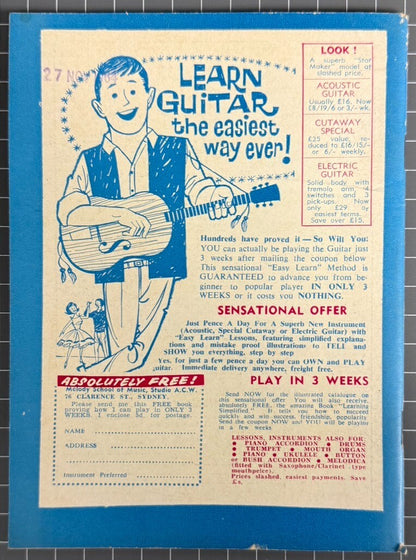 27 NOV
LEARN
GUITAR
the easiest
way ever!
LOOK !
A superb "Star
Maker" model at
slashed price.
ACOUSTIC
GUITAR
Usually £16. Now
£8/19/6 or 3/- wk.
CUTAWAY
SPECIAL
£25 value, re-
duced to £16/15/-
or 6/- weekly.
ELECTRIC
GUITAR
Solid body with
tremolo arm 4
switches and 3
pick-ups. Now
only £29 by
easiest terms.
Save over £15.
Hundreds have proved it — So Will You:
YOU can actually be playing the Guitar just
3 weeks after mailing the coupon below
This sensational "Easy Learn" Method is
GUARANTEED to advance you from beg-
inner to popular player IN ONLY 3
WEEKS or it costs you NOTHING.
SENSATIONAL OFFER
Just Pence A Day For A Superb New Instrument
(Acoustic, Special Cutaway or Electric Guitar) with
"Easy Learn" Lessons, featuring simplified expla-
nations and mistake proof illustrations to TELL and
SHOW you everything, step by step
Yes, for just a few pence a day you can OWN and PLAY
guitar. Immediate delivery anywhere, freight free.
ABSOLUTELY FREE!
Melody School of Music, Studio A.C.W.
76 CLARENCE ST., SYDNEY.
Please send me this FREE book
proving how I can play in ONLY 3
WEEKS. I enclose 5d. for postage.
NAME
ADDRESS
Instrument Preferred
PLAY IN 3 WEEKS
Send NOW for the illustrated catalogue on
this sensational offer You will also receive,
absolutely FREE, the amazing Book "Learning
Simplified." It tells you how to succeed
quickly and win success, friendship, popularity
Send the coupon NOW and YOU will be playing
in a few weeks
LESSONS, INSTRUMENTS ALSO FOR:
• PIANO ACCORDION • DRUMS
• TRUMPET • MOUTH ORGAN
• PIANO • UKULELE • BUTTON
or BUSH ACCORDION • MELODICA
(fitted with Saxophone/Clarinet type
mouthpiece).
Prices slashed, easiest payments. Save
£s.